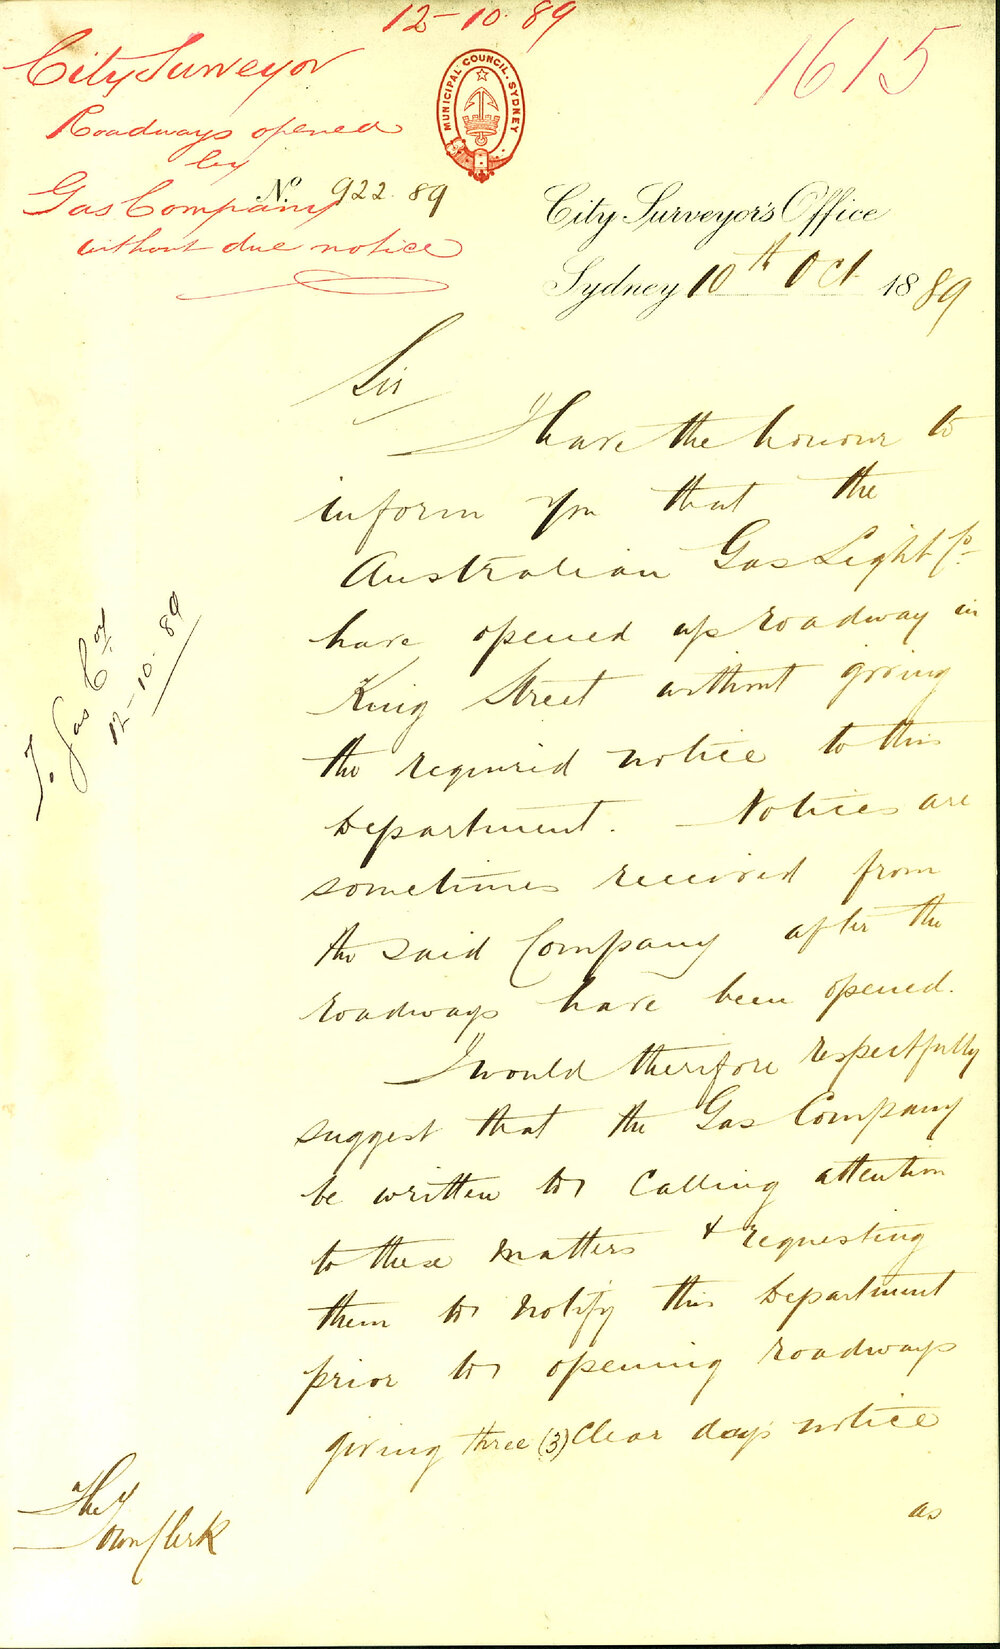 12-10.89
1615
City Surveyor
Roadways opened
by
Gas Company
without due notice
MUNICIPAL COUNCIL. SYDNEY
No. 922.89
City Surveyor's Office
Sydney 10th Oct 1889
Sir
I have the honour to
inform you that the
Australian Gas Light Co
have opened up roadway in
King Street without giving
the required notice to this
Department. Notices are
sometimes received from
the said Company after the
roadways have been opened.
I would therefore respectfully
suggest that the Gas Company
be written to calling attention
to these matters & requesting
them to notify this Department
prior to opening roadways
giving three (3) clear days notice
as
To Gas Coy
12-10.89
The
Town Clerk